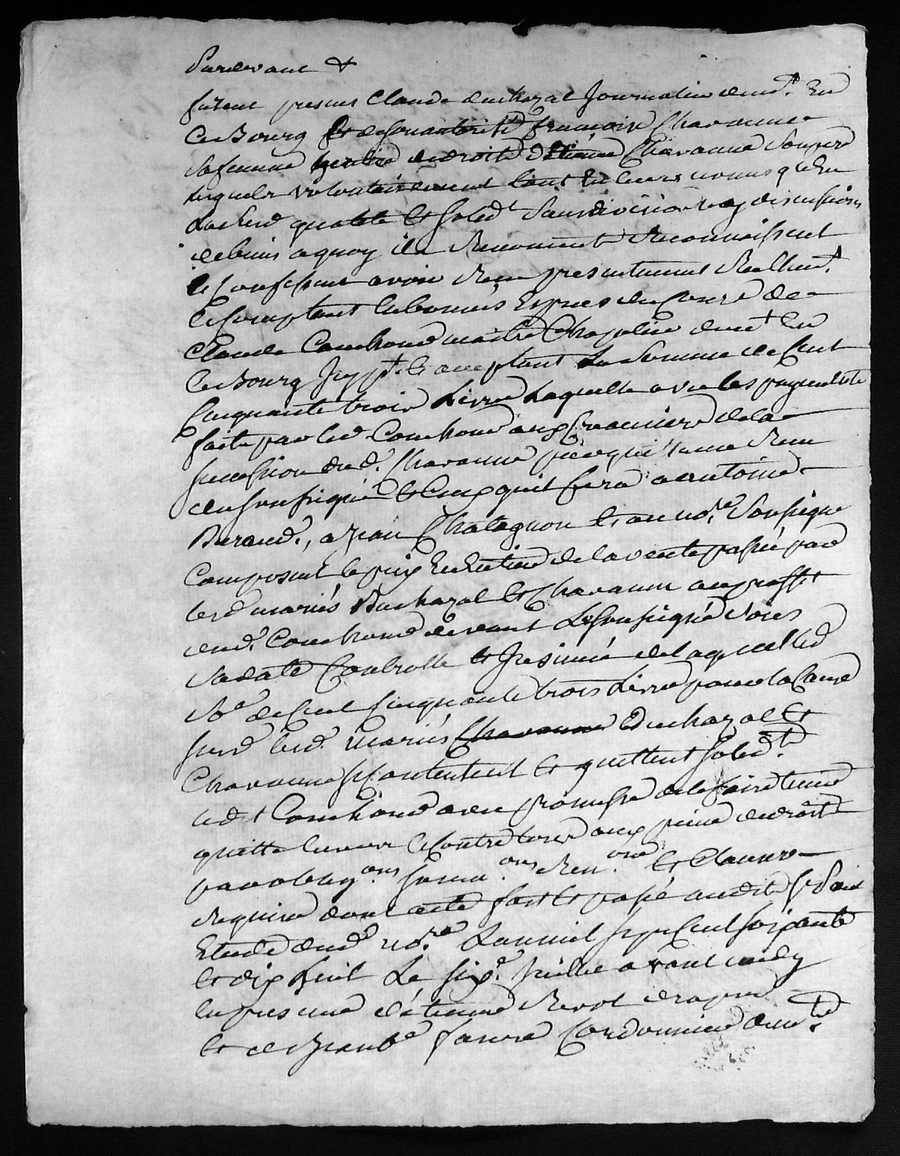 Pardevant &
furent presens Claude Duchazal Journalier dem.t En
ce Bourg Et de son autorité françoise Chavanne
sa femme heritie de droit d'Etienne Chavanne son pere
lesquels volontairement tant En leurs noms qu'En
lad. qualité Et solid.t sans division ny discussion
de biens a quoy ils Renoncent Reconnoissent
Et confessent avoir Reçu presentement Reellem.t
Et comptant En bonnes Espèces du cours de
Claude Combrond maître Chapelier dem.t En
ce Bourg icy p.t Et acceptant La somme de Cent
Cinquante trois Livres Laquelle avec les payements
faits par led. Combrond aux Creanciers de la
succession dud. Chavanne Jacquet
du soussigné Et Ceux qu'il fera a antoine
Beraud, a Jean Chatagnon Et au no.re soussigné
Composent le prix Entier de la vente passée par
lesd. mariés Duchazal Et Chavanne au proffit
dud. Combrond devant Le soussigné sous
sa date Controllé Et Insinué de laquelle
So.e de Cent Cinquante trois Livres pour la Cause
susd. lesd. mariés Duchazal Et
Chavanne se Contentent Et quittent solid.t
led.t Combrond avec promesse de le faire tenir
quitte Envers Et contre tous aux peines de droit
par oblig.ons soum.ons Ren.ons Et Clauses
Requises dont acte fait Et passé audit
Etude dud. no.re L'an mil sept Cent soixante
Et dix huit Le six.e Juillet avant midy
En presence d'Etienne Revot
Et de faure Cordonnier dem.t